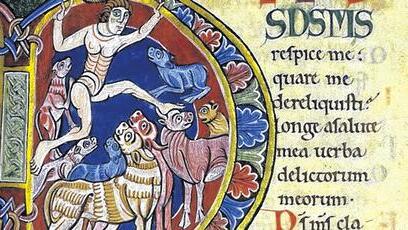 SDSMS
respice me.
quare me
dereliquisti:
longe asalute
mea uerba
delictorum
meorum.
Ds ms cla